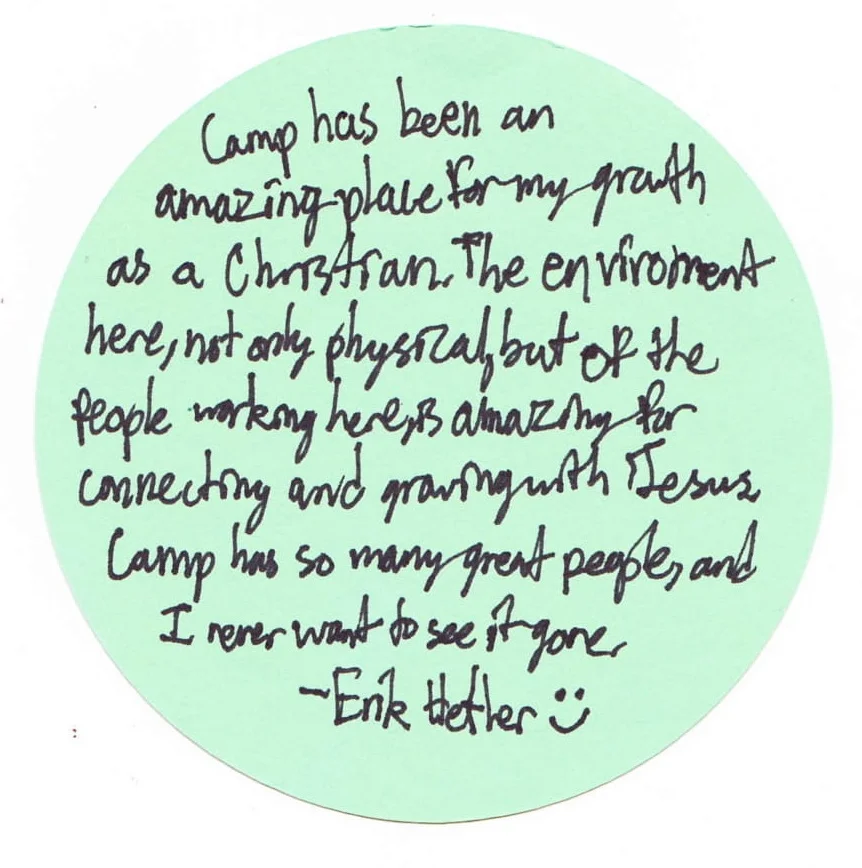 Camp has been an
amazing place for my growth
as a Christian. The enviroment
here, not only physical, but of the
people working here, is amazing for
connecting and growing with Jesus.
Camp has so many great people, and
I never want to see it gone.
-Erik Hether :)